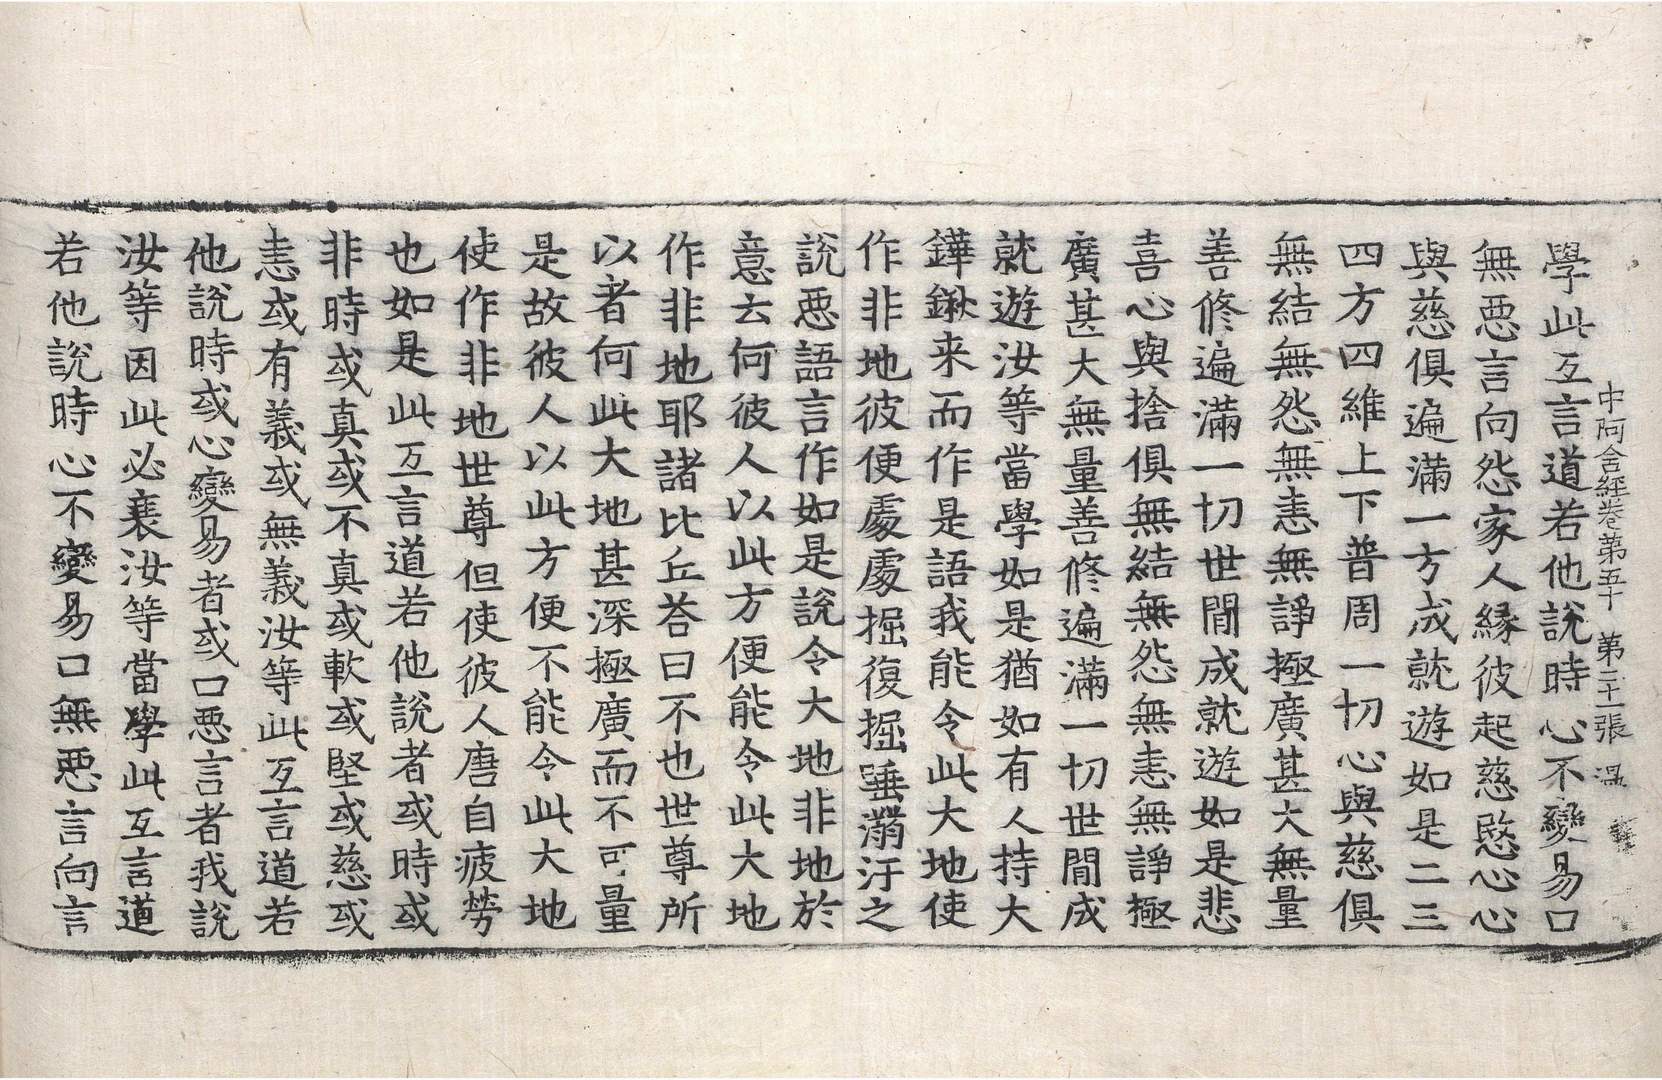 中阿含經卷第五十 第二十一張 溫
學此互言道若他說時心不變易口
無惡言向怨家人縁彼起慈愍心心
與慈俱遍滿一方成就遊如是二三
四方四維上下普周一切心與慈俱
無結無怨無恚無諍極廣甚大無量
善修遍滿一切世閒成就遊如是悲
喜心與捨俱無結無怨無恚無諍極
廣甚大無量善修遍滿一切世閒成
就遊汝等當學如是猶如有人持大
鏵鍬来而作是語我能令此大地使
作非地彼便處處掘復掘唾溺汙之
說惡語言作如是說令大地非地於
意云何彼人以此方便能令此大地
作非地耶諸比丘荅曰不也世尊所
以者何此大地甚深極廣而不可量
是故彼人以此方便不能令此大地
使作非地世尊但使彼人唐自疲勞
也如是此互言道若他說者或時或
非時或真或不真或軟或堅或慈或
恚或有義或無義汝等此互言道若
他說時或心變易者或口惡言者我說
汝等因此必衰汝等當學此互言道
若他說時心不變易口無惡言向言